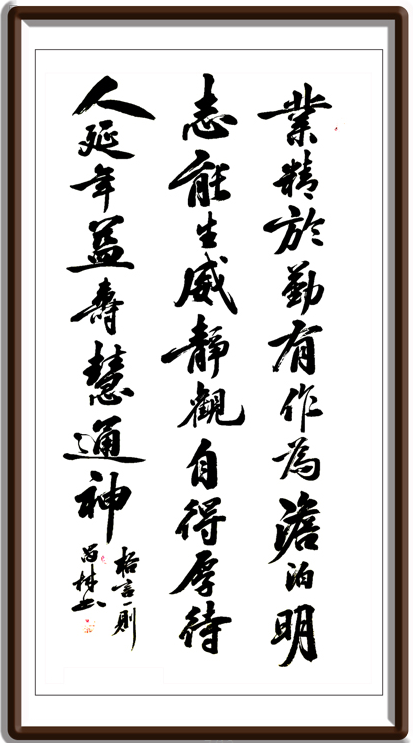 業精於勤有作為澹泊明
志能生威靜觀自得厚待
人延年益壽慧通神
格言一則
昌林书